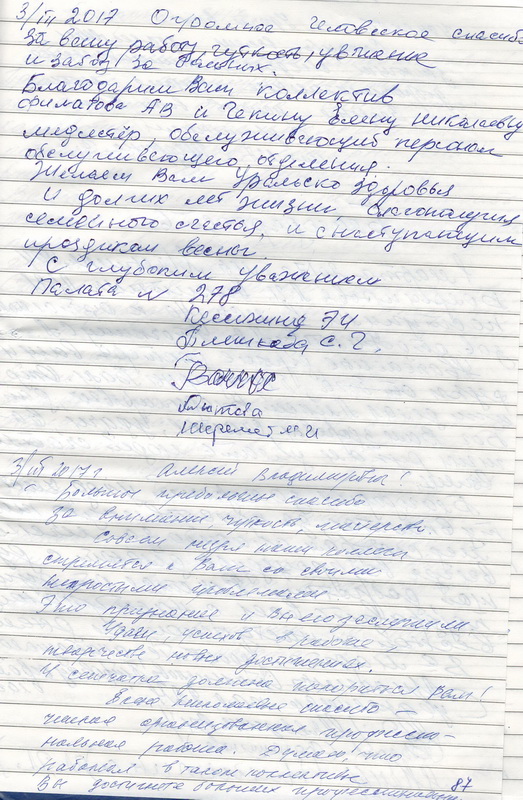 3/III 2017 Огромное человеческое спасибо
За вашу работу чуткость, уважение
и заботу за больных.
Благодарим Ваш коллектив
Филатова АВ и Чепину Елену Николаевну
медсестёр, обслуживающий персонал
обслуживающего отделения.
Желаем Вам Уральско здоровья
и долгих лет жизни, благополучия,
семейного счастья, и с наступающим
праздником весны.
С глубоким уважением
Палата № 278
Плешкова С. Г.
Лютова
Шеремет
3/III 2017 г Алексей Владимирович!
Большое спасибо
за внимание, чуткость, мастерство.
Совсем
стремятся к Вам со своими
непростыми
Это признание и Вы его заслужили.
Удачи, успехов в работе,
творчестве новых достижений.
И должна покориться Вам!
Елена Николаевна спасибо –
четкая организованная професcио-
нальная работа. Думаю, что
работая в таком коллективе
Вы достигнете больших
87